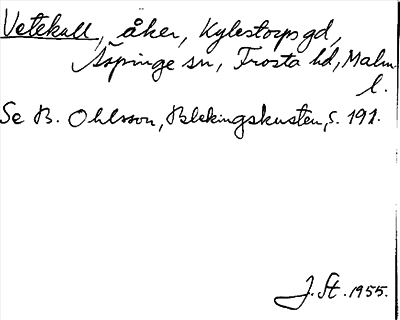 Vetekull, åker, Kylestorps gd,
Äspinge sn, Frosta hd, Malm.
l.
Se B. Ohlsson, Blekingskusten, s. 191.
J. St. 1955.